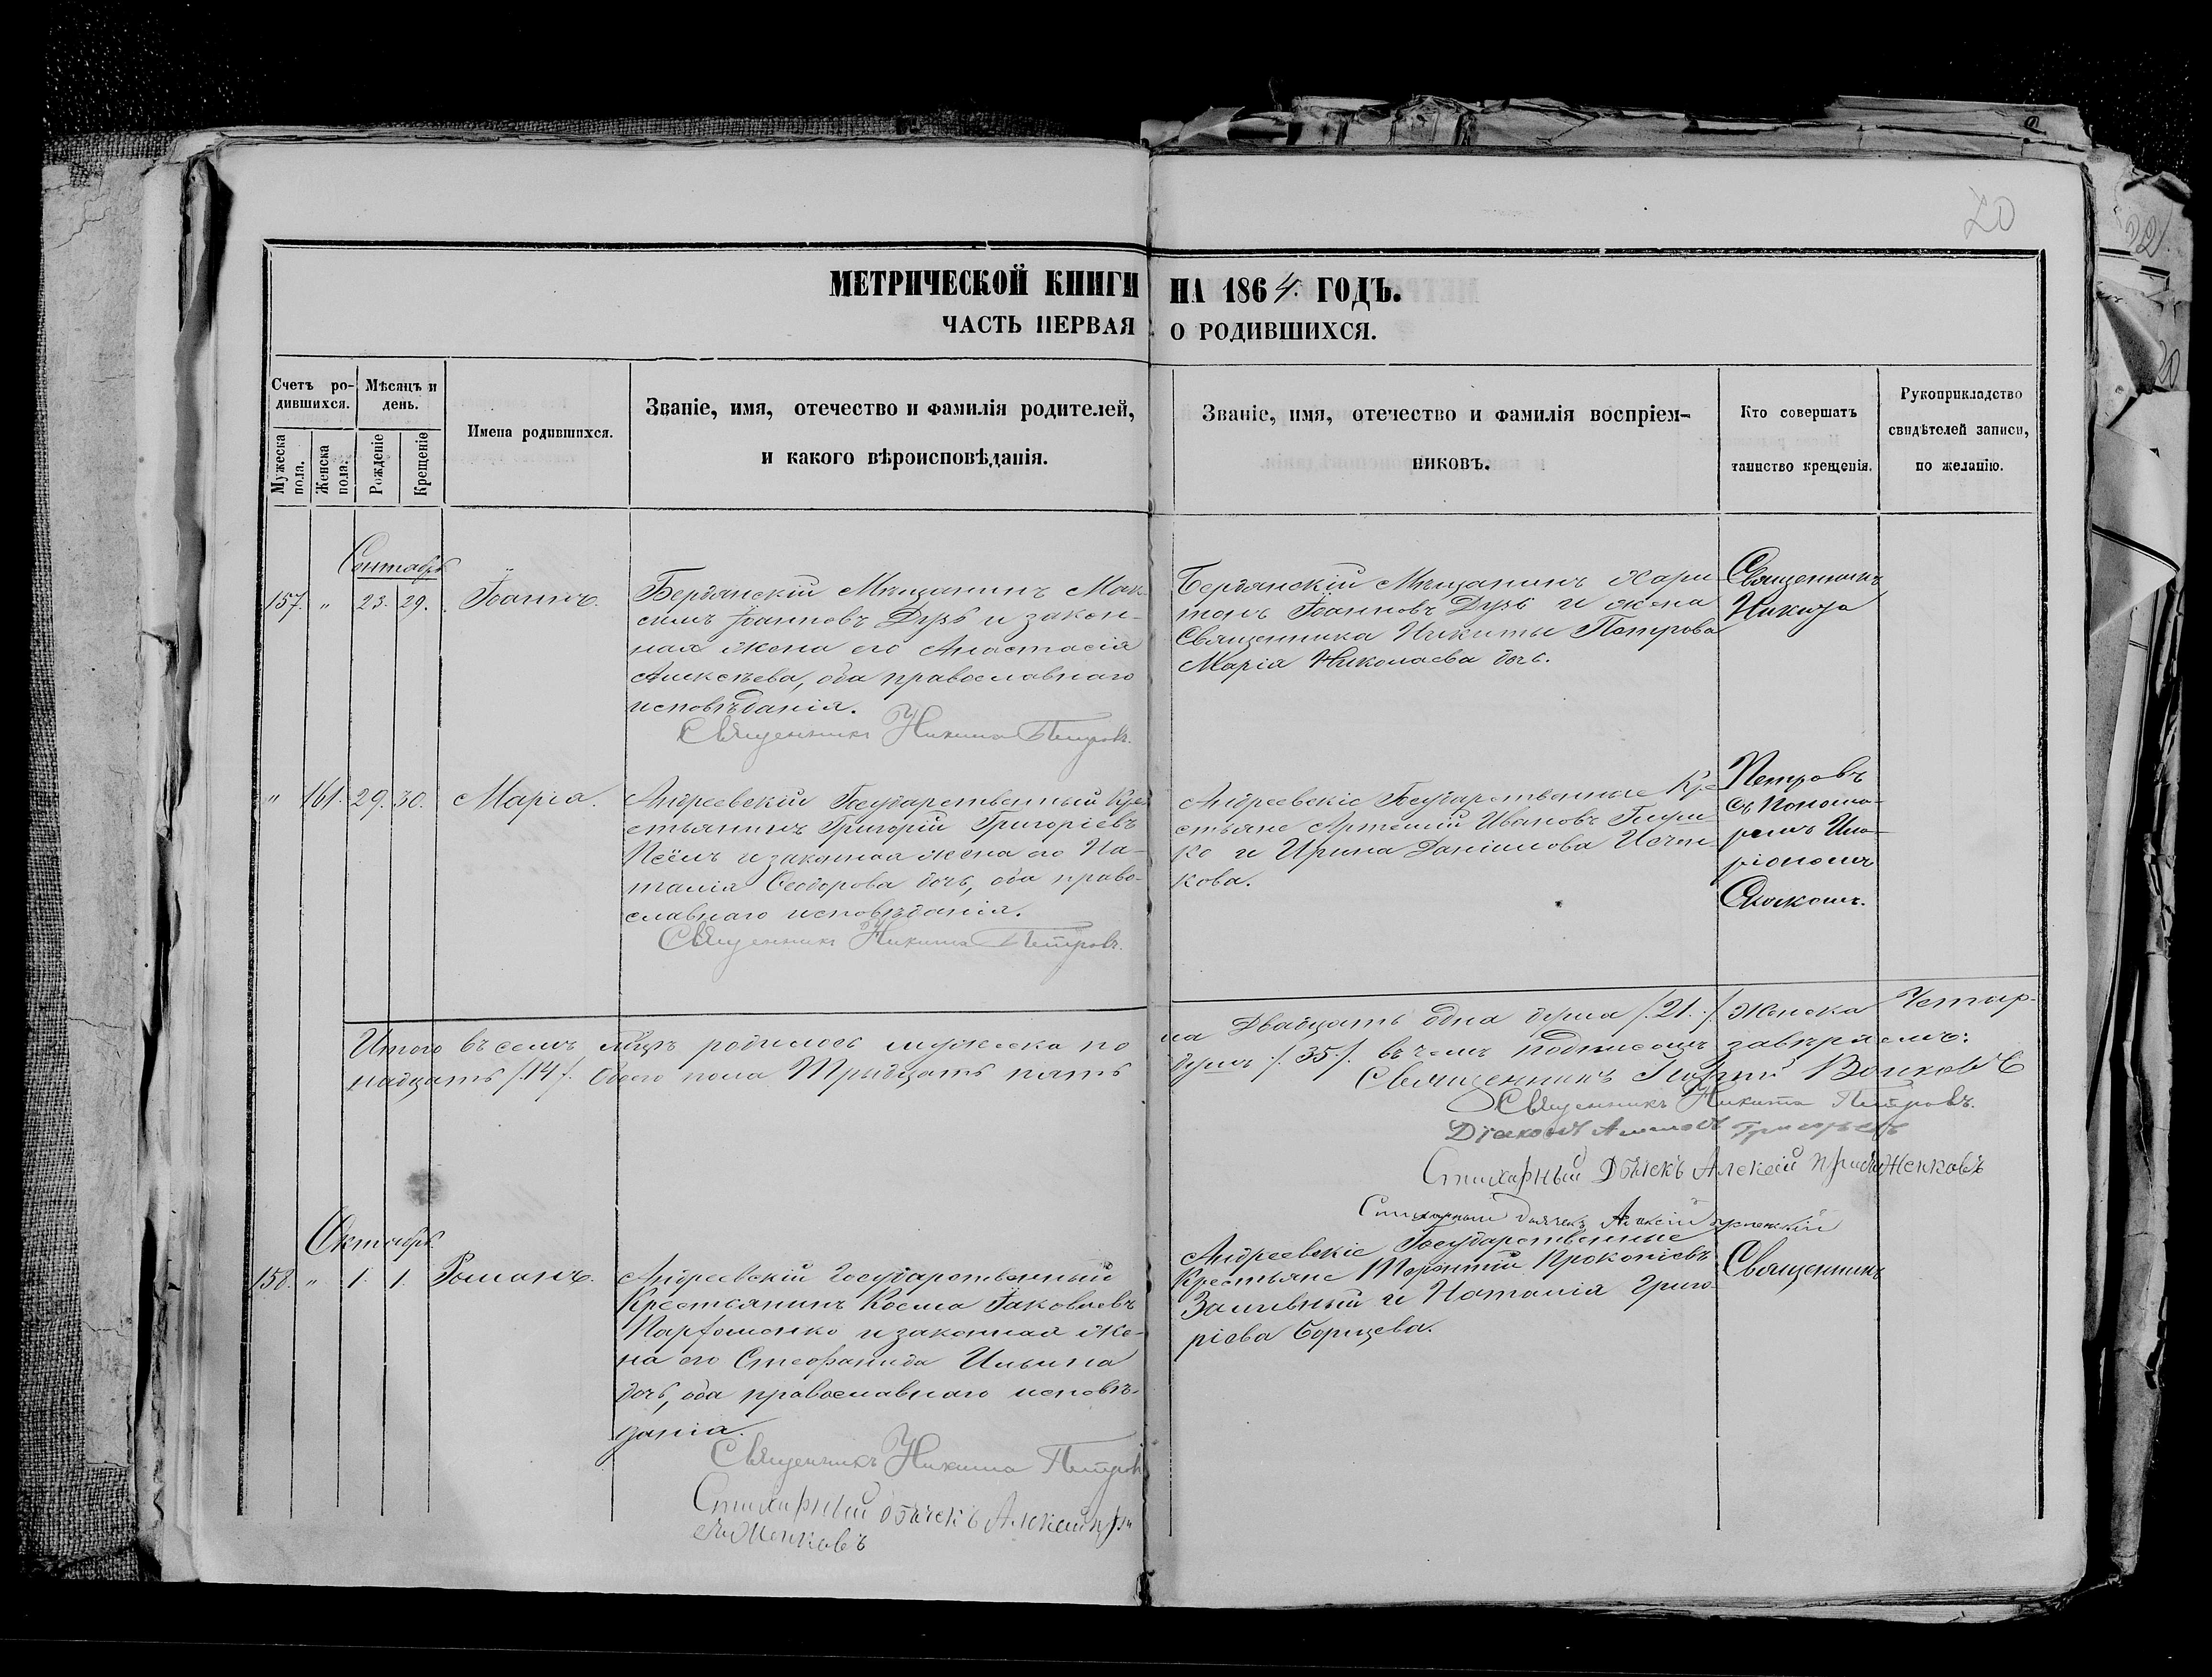 20
22
20
МЕТРИЧЕСКОЙ КНИГИ НА 1864. ГОДЪ.
ЧАСТЬ ПЕРВАЯ О РОДИВШИХСЯ.
Счетъ ро-
дившихся.
Мужеска пола.
Женска пола.
Мѣсяцъ и
день.
Рожденіе
Крещеніе
Имена родившихся.
Званіе, имя, отечество и фамилія родителей,
и какого вѣроисповѣданія.
Званіе, имя, отечество и фамилія воспріем-
никовъ.
Кто совершатъ
таинство крещенія.
Рукоприкладство
свидѣтелей записи,
по желанію.
Сентябрь
157. " 23. 29. Іоаннъ.
Бердянскій Мѣщанинъ Мак-
симъ Іоанновъ Дузь и закон-
ная жена его Анастасія
Алексѣева, оба православнаго
исповѣданія.
Священникъ Никита Петровъ.
Бердянскій Мѣщанинъ Хари
тонъ Іоанновъ Дузь и жена
Священника Никиты Петрова
Марія Николаева дочь.
Священникъ
Никита
" 161. 29. 30. Марія.
Андреевскій Государственный Кре
стьянинъ Григорій Григоріевъ
и законная жена его На-
талія Ѳеодорова дочь, оба право-
славнаго исповѣданія.
Священникъ Никита Петровъ.
Андреевскіе Государственные Кре
стьяне Артемій Ивановъ
ко и Ирина Даніилова
кова.
Петровъ
съ Понома-
ремъ Ила-
ріономъ
Итого въ семъ мѣсяцѣ родилось мужеска по
ла Двадцать одна душа /.21./ Женска Четыр-
надцать /.14/. Обоего пола Тридцать пять
душъ /.35./. въ чемъ подписомъ завѣряемъ:
Священникъ Георгій Волковъ
Священникъ Никита Петровъ.
Діаконъ Григорьевъ
Стихарный Дьячекъ Алексій
Стихарный дьячекъ Алексій Успенскій
Октябрь.
158. " 1. 1. Романъ.
Андреевскій Государственный
Крестьянинъ Косма Іаковлевъ
Парfоменко и законная же-
на его Стефанида Ильина
дочь, оба православнаго исповѣ-
данія.
Священникъ Никита Петровъ
Стихарный дьячекъ Алексій
Андреевскіе Государственные
Крестьяне Терентій Прокопіевъ
и Наталія Григо-
ріева Борщева.
Священникъ